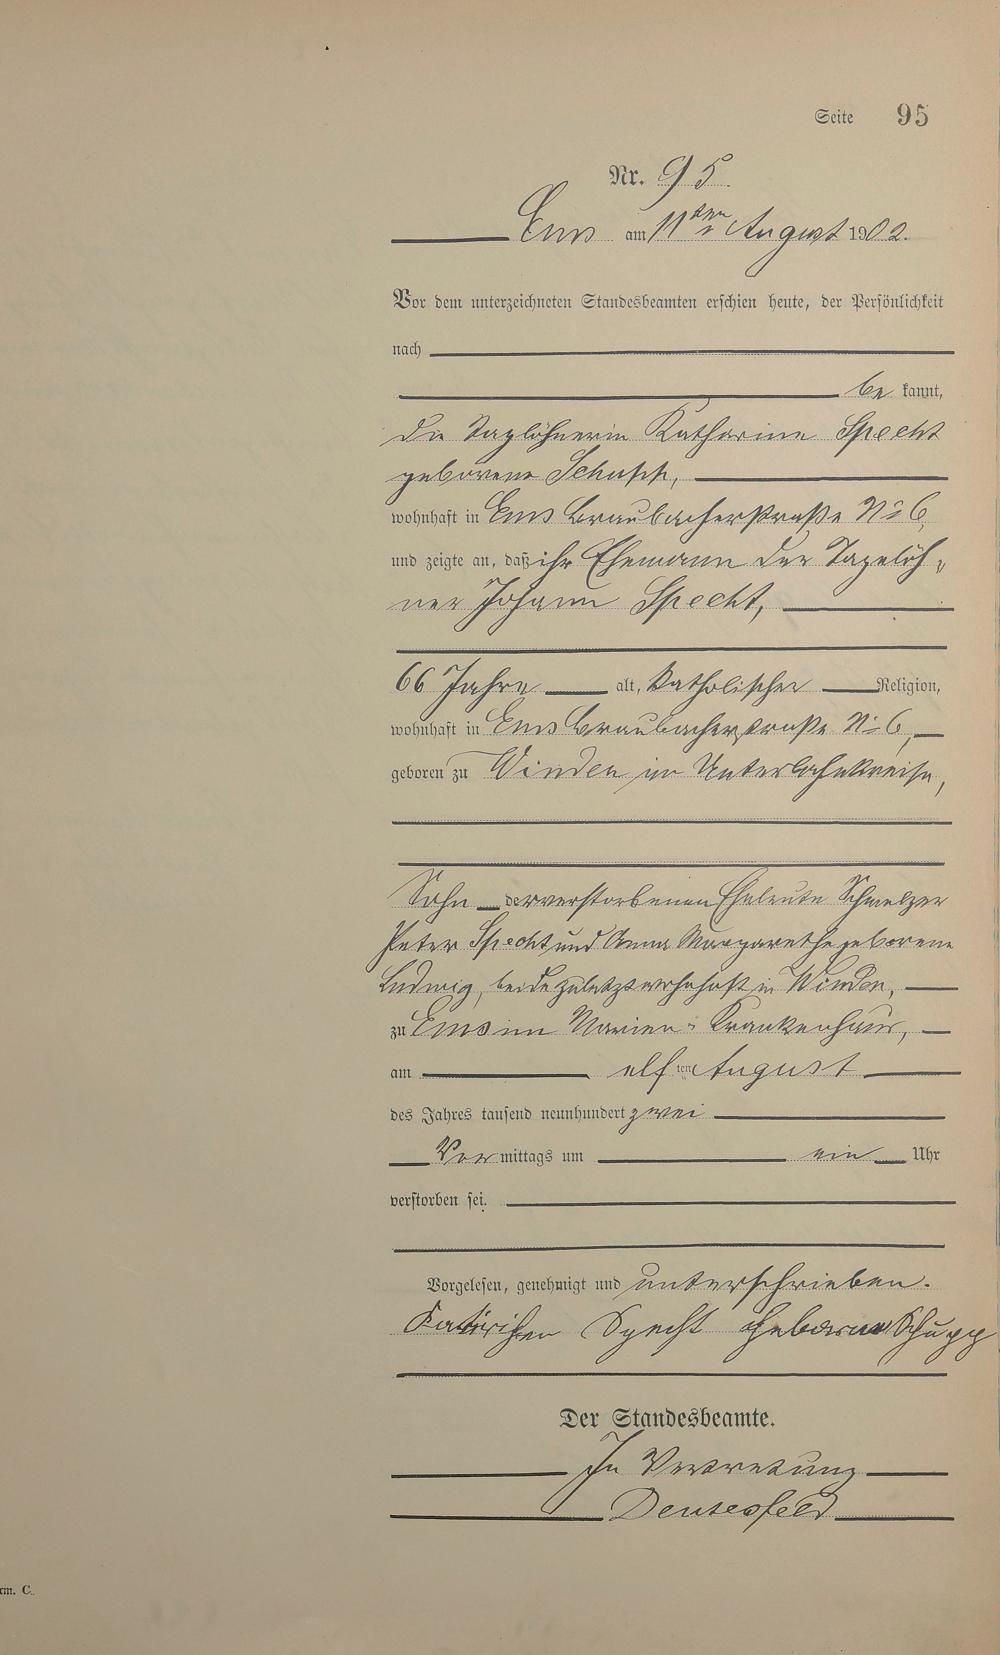 Seite 95
Nr. 95.
Ems am 11ten August 1902.
Vor dem unterzeichneten Standesbeamten erschien heute, der Persönlichkeit
nach
be kannt,
die Taglöhnerin Katharine Specht
geborene Schupp,
wohnhaft in Ems Braubacherstraße No 6,
und zeigte an, daß ihr Ehemann der Tagelöh-
ner Johann Specht,
66 Jahre alt, katholischer Religion,
wohnhaft in Ems Braubacherstraße No 6,
geboren zu Winden im Unterlahnkreise,
Sohn der verstorbenen Eheleute Schmelzer
Peter Specht und Anna Margarethe geborene
Ludwig, beide zuletzt wohnhaft in Winden,
zu Ems im Marien-Krankenhaus,
am elf ten August
des Jahres tausend neunhundert zwei
Vor mittags um ein Uhr
verstorben sei.
Vorgelesen, genehmigt und unterschrieben.
Specht Schupp
Der Standesbeamte.
In Vertretung
rm. C.